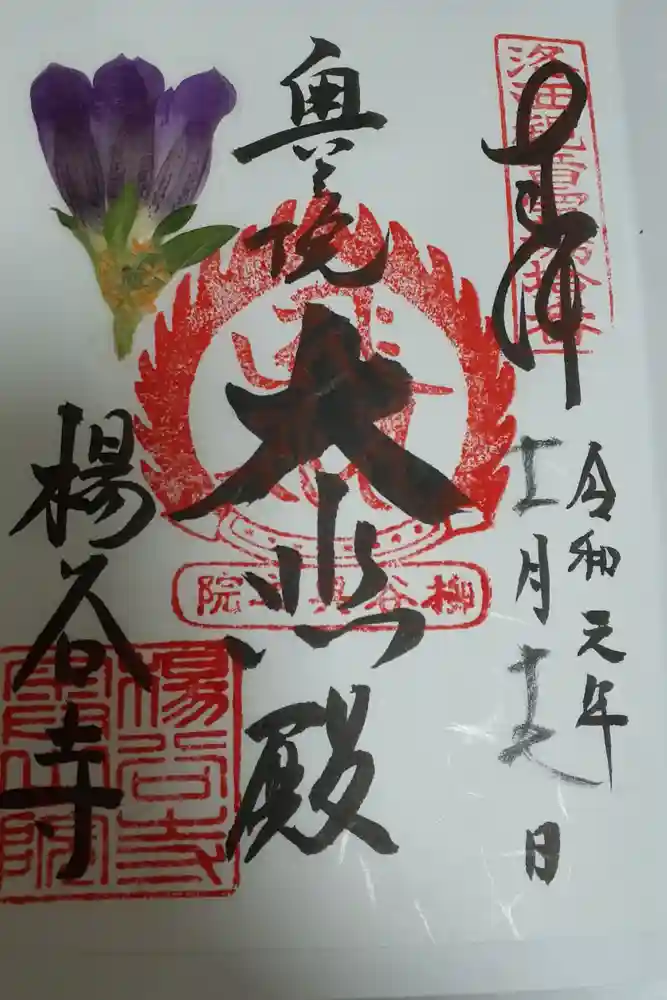 洛西観音霊場拾番
奉拝
令和元年
十一月十七日
奥之院
大悲殿
柳谷奥之院
楊谷寺
楊谷寺